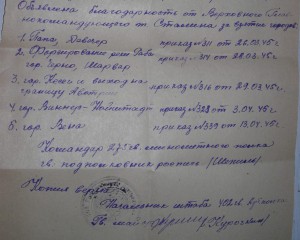 Объявлена благодарность от Верховного Глав-
нокомандующего т. Сталина за взятие городов:
1. Папа, Девечер приказ № 311 от 26.03.45 г.
2. Форсирование реки Раба
гор. Чорно, Шарвар приказ № 314 от 28.03.45 г.
3. гор. Кесег и выход на
границу Австрии приказ № 316 от 29.03.45 г.
4. гор. Виннер-Нейштадт приказ № 328 от 3.04.45 г.
5. гор. Вена приказ № 334 от 13.04.45 г.
Командир минометного полка
гв. подполковник роспись
Копия верна:
Начальник штаба
Гв. майор